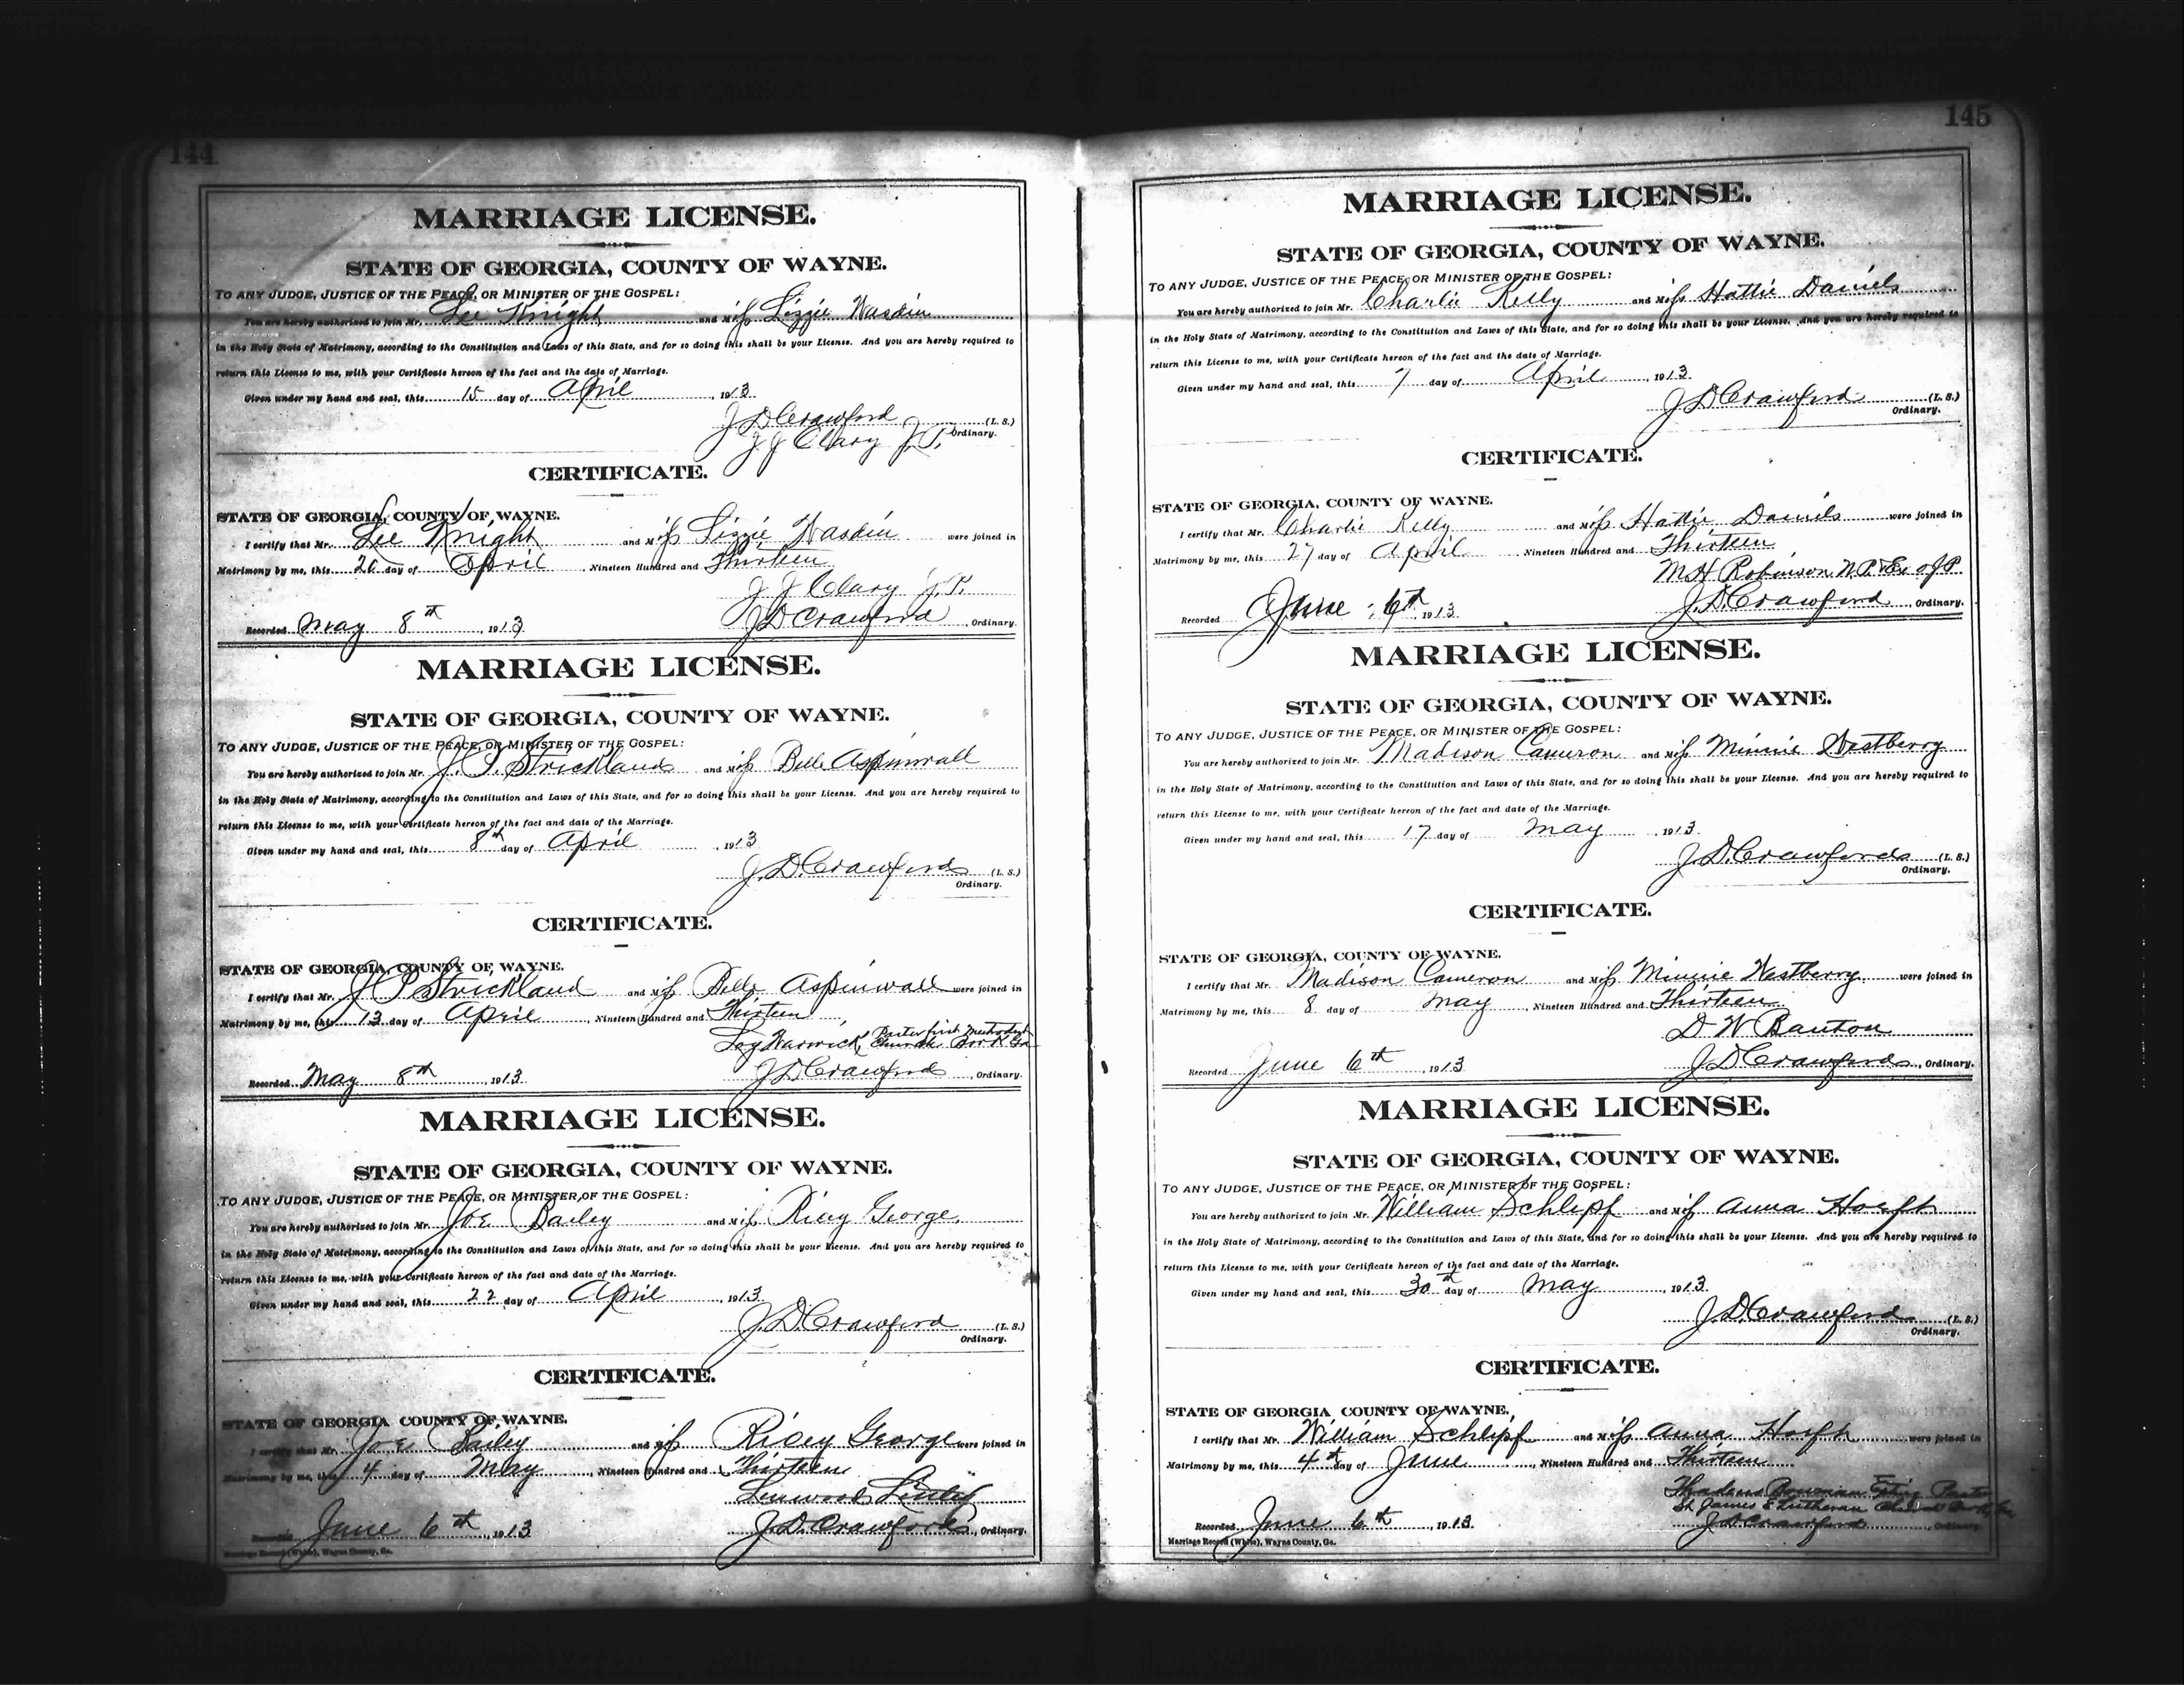 144
MARRIAGE LICENSE.
STATE OF GEORGIA, COUNTY OF WAYNE.
TO ANY JUDGE, JUSTICE OF THE PEACE, OR MINISTER OF THE GOSPEL:
You are hereby authorized to join Mr. Lee Knight and Miss Lizzie Wasdin
in the Holy State of Matrimony, according to the Constitution and Laws of this State, and for so doing this shall be your License. And you are hereby required to
return this License to me, with your Certificate hereon of the fact and the date of Marriage.
Given under my hand and seal, this 15 day of April, 1913
J D Crawford (L. S.)
J J Clary J.P. Ordinary.
CERTIFICATE.
STATE OF GEORGIA, COUNTY OF WAYNE.
I certify that Mr. Lee Knight and Miss Lizzie Wasdin were joined in
Matrimony by me, this 20 day of April, Nineteen Hundred and Thirteen
J J Clary J.P.
Recorded May 8th, 1913 J D Crawford, Ordinary.
MARRIAGE LICENSE.
STATE OF GEORGIA, COUNTY OF WAYNE.
TO ANY JUDGE, JUSTICE OF THE PEACE, OR MINISTER OF THE GOSPEL:
You are hereby authorized to join Mr. J. P. Strickland and Miss Belle Aspinwall
in the Holy State of Matrimony, according to the Constitution and Laws of this State, and for so doing this shall be your License. And you are hereby required to
return this License to me, with your Certificate hereon of the fact and date of the Marriage.
Given under my hand and seal, this 8th day of April, 1913
J. D. Crawford (L. S.)
Ordinary.
CERTIFICATE.
STATE OF GEORGIA, COUNTY OF WAYNE.
I certify that Mr. J P Strickland and Miss Belle Aspinwall were joined in
Matrimony by me, this 13 day of April, Nineteen Hundred and Thirteen
Loy Warwick, Pastor first Methodist
Church
Recorded May 8th, 1913 J D Crawford, Ordinary.
MARRIAGE LICENSE.
STATE OF GEORGIA, COUNTY OF WAYNE.
TO ANY JUDGE, JUSTICE OF THE PEACE, OR MINISTER OF THE GOSPEL:
You are hereby authorized to join Mr. Joe Bailey and Miss Ricy George
in the Holy State of Matrimony, according to the Constitution and Laws of this State, and for so doing this shall be your License. And you are hereby required to
return this License to me, with your Certificate hereon of the fact and date of the Marriage.
Given under my hand and seal, this 22 day of April, 1913
J. D. Crawford (L. S.)
Ordinary.
CERTIFICATE.
STATE OF GEORGIA COUNTY OF WAYNE.
I certify that Mr. Joe Bailey and Miss Ricy George were joined in
Matrimony by me, this 4 day of May, Nineteen Hundred and Thirteen
Linwood
Recorded June 6th, 1913 J. D. Crawford, Ordinary.
Marriage Record (White), Wayne County, Ga.
145
MARRIAGE LICENSE.
STATE OF GEORGIA, COUNTY OF WAYNE.
TO ANY JUDGE, JUSTICE OF THE PEACE, OR MINISTER OF THE GOSPEL:
You are hereby authorized to join Mr. Charlie Kelly and Miss Hattie Daniels
in the Holy State of Matrimony, according to the Constitution and Laws of this State, and for so doing this shall be your License. And you are hereby required to
return this License to me, with your Certificate hereon of the fact and the date of Marriage.
Given under my hand and seal, this 7 day of April, 1913.
J D Crawford (L. S.)
Ordinary.
CERTIFICATE.
STATE OF GEORGIA, COUNTY OF WAYNE.
I certify that Mr. Charlie Kelly and Miss Hattie Daniels were joined in
Matrimony by me, this 27 day of April Nineteen Hundred and Thirteen
M H Robinson N.P. & Ex of P.
Recorded June 6th, 1913. J. D. Crawford, Ordinary.
MARRIAGE LICENSE.
STATE OF GEORGIA, COUNTY OF WAYNE.
TO ANY JUDGE, JUSTICE OF THE PEACE, OR MINISTER OF THE GOSPEL:
You are hereby authorized to join Mr. Madison Cameron and Miss Minnie Westberry
in the Holy State of Matrimony, according to the Constitution and Laws of this State, and for so doing this shall be your License. And you are hereby required to
return this License to me, with your Certificate hereon of the fact and date of the Marriage.
Given under my hand and seal, this 17 day of May, 1913.
J. D. Crawford (L. S.)
Ordinary.
CERTIFICATE.
STATE OF GEORGIA, COUNTY OF WAYNE.
I certify that Mr. Madison Cameron and Miss Minnie Westberry were joined in
Matrimony by me, this 8 day of May, Nineteen Hundred and Thirteen
D. W Banton
Recorded June 6th, 1913 J. D. Crawford, Ordinary.
MARRIAGE LICENSE.
STATE OF GEORGIA, COUNTY OF WAYNE.
TO ANY JUDGE, JUSTICE OF THE PEACE, OR MINISTER OF THE GOSPEL:
You are hereby authorized to join Mr. William Schlipf and Miss Anna Hoeft
in the Holy State of Matrimony, according to the Constitution and Laws of this State, and for so doing this shall be your License. And you are hereby required to
return this License to me, with your Certificate hereon of the fact and date of the Marriage.
Given under my hand and seal, this 30th day of May, 1913.
J. D. Crawford (L. S.)
Ordinary.
CERTIFICATE.
STATE OF GEORGIA COUNTY OF WAYNE.
I certify that Mr. William Schlipf and Miss Anna Hoeft were joined in
Matrimony by me, this 4th day of June, Nineteen Hundred and Thirteen
Thadeus Bowman Pastor
St. James E Lutheran
Recorded June 6th, 1913. J D Crawford, Ordinary.
Marriage Record (White), Wayne County, Ga.